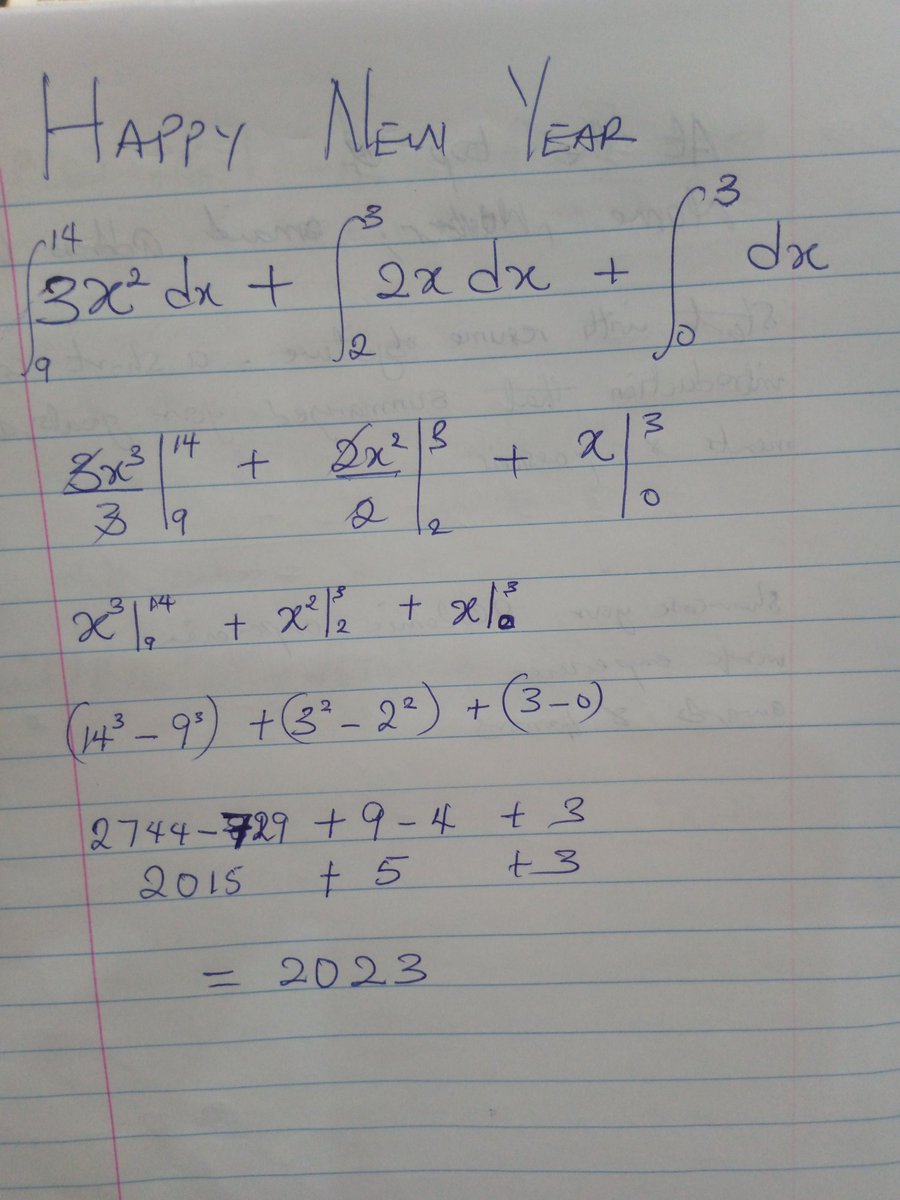 HAPPY NEW YEAR
∫₉¹⁴ 3x² dx + ∫₂³ 2x dx + ∫₀³ dx
3x³/3 |₉¹⁴ + 2x²/2 |₂³ + x |₀³
x³|₉¹⁴ + x²|₂³ + x|₀³
(14³ – 9³) + (3² – 2²) + (3 – 0)
2744 – 729 + 9 – 4 + 3
2015 + 5 + 3
= 2023